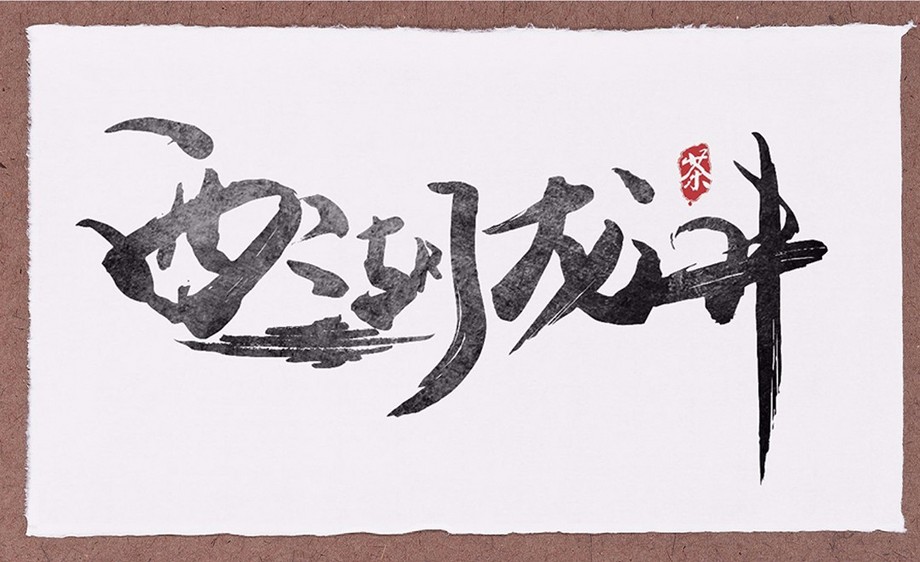 西湖龙井
茶